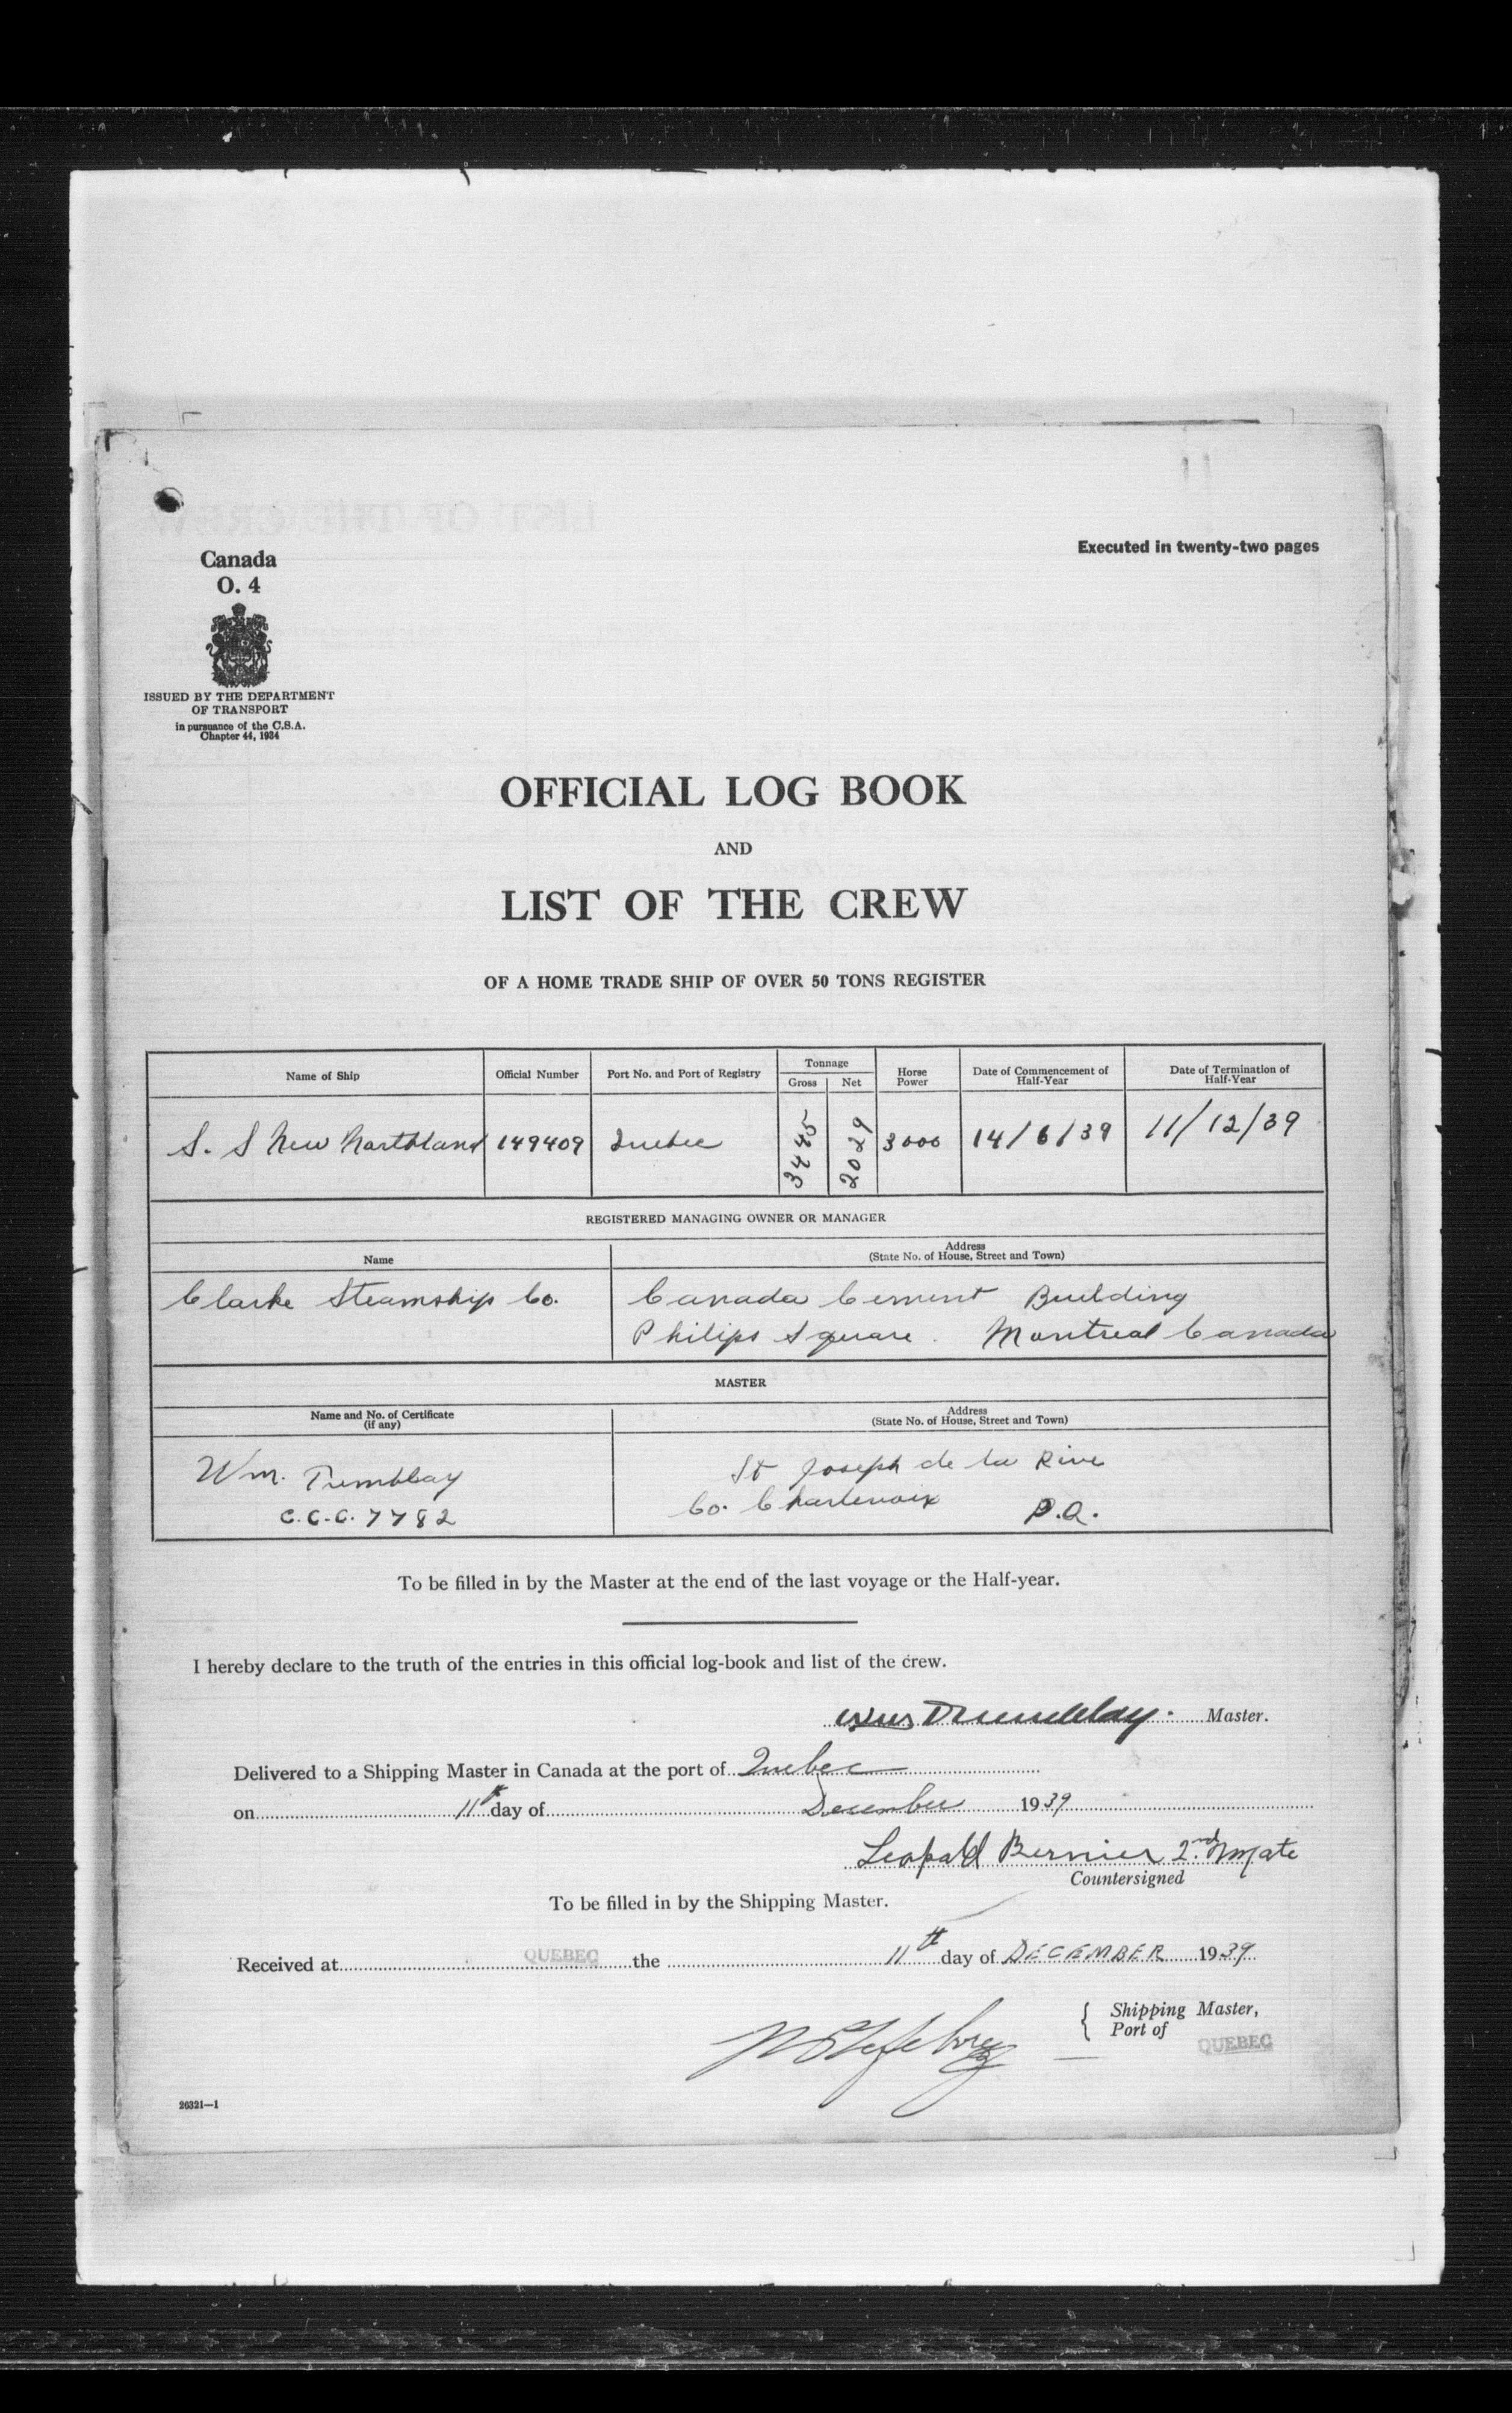 Executed in twenty-two pages
Canada
O. 4
ISSUED BY THE DEPARTMENT
OF TRANSPORT
in pursuance of the C.S.A.
Chapter 44, 1934
OFFICIAL LOG BOOK
AND
LIST OF THE CREW
OF A HOME TRADE SHIP OF OVER 50 TONS REGISTER
Name of Ship Official Number Port No. and Port of Registry Tonnage Gross Net Horse Power Date of Commencement of Half-Year Date of Termination of Half-Year
S. S New Northland 149409 Quebec 3445 2029 3000 14/6/39 11/12/39
REGISTERED MANAGING OWNER OR MANAGER
Name Address
(State No. of House, Street and Town)
Clarke Steamship Co. Canada Cement Building
Philips Square. Montreal Canada
MASTER
Name and No. of Certificate
(if any) Address
(State No. of House, Street and Town)
Wm. Tremblay St Joseph de la Rive
C.C.C. 7782 Co. Charlevoix P.Q.
To be filled in by the Master at the end of the last voyage or the Half-year.
I hereby declare to the truth of the entries in this official log-book and list of the crew.
Wm Tremblay. Master.
Delivered to a Shipping Master in Canada at the port of Quebec
on 11th day of December 1939
Leopold Bernier 2nd Mate
Countersigned
To be filled in by the Shipping Master.
Received at QUEBEC the 11th day of DECEMBER 1939
Shipping Master,
Port of
QUEBEC
26321—1